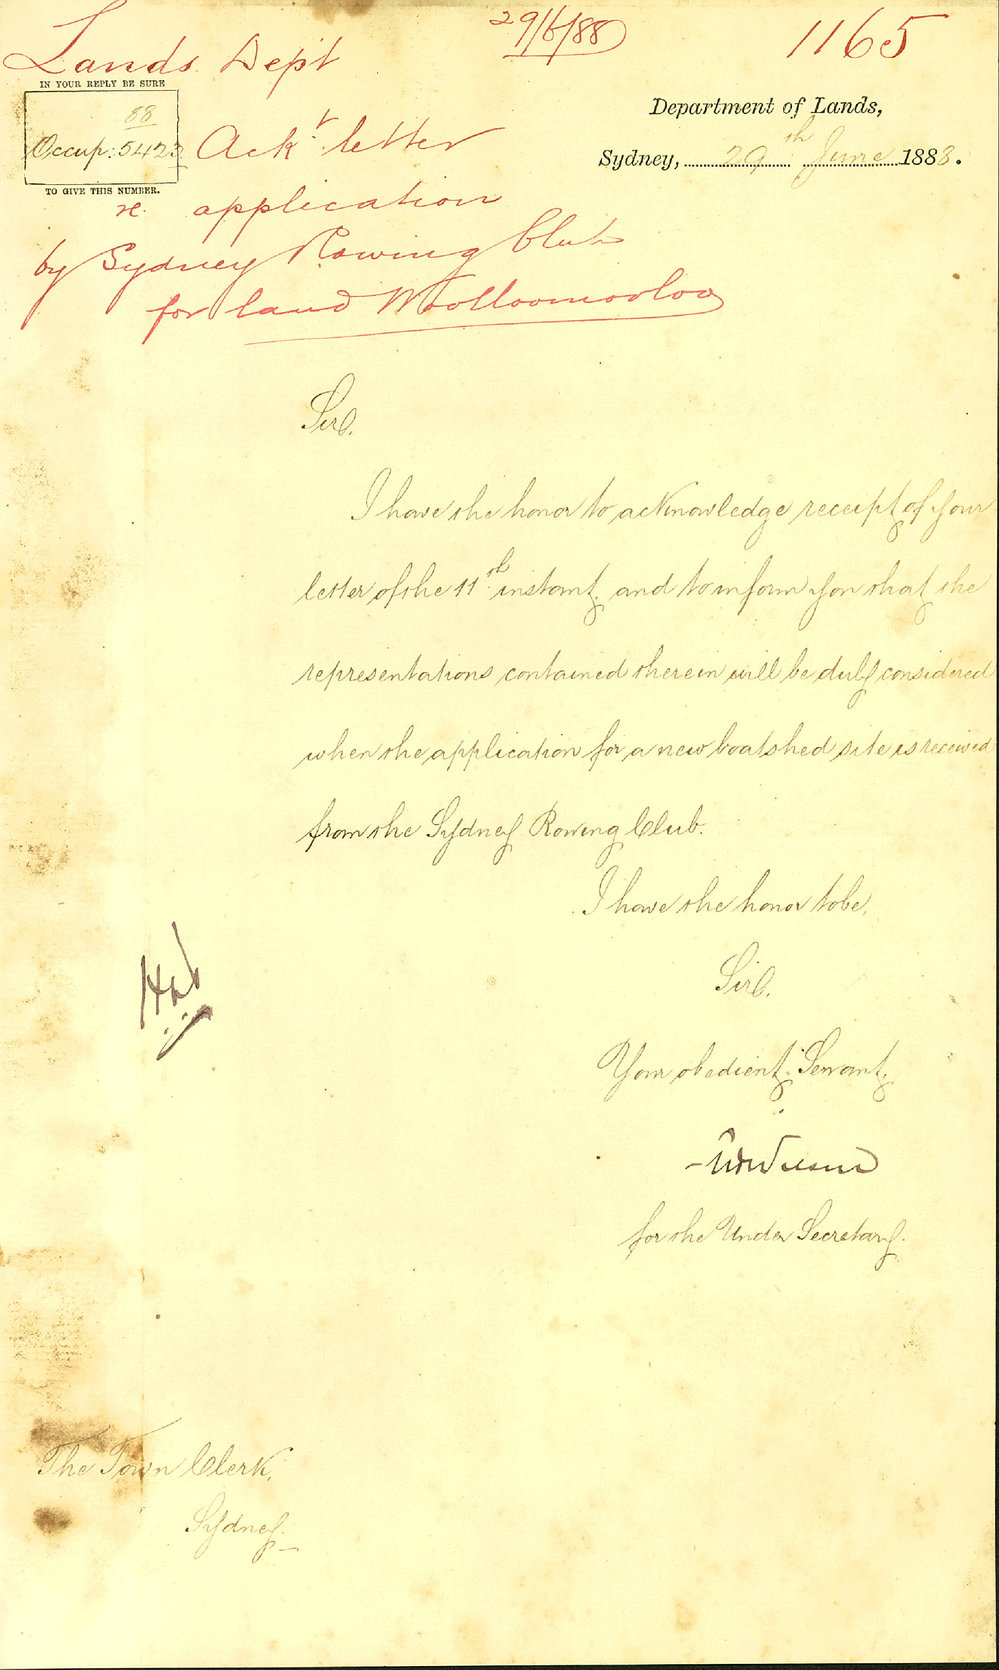 29/6/88
1165
Lands Dept
IN YOUR REPLY BE SURE
88
Occup: 5423
TO GIVE THIS NUMBER.
Ackt letter
re application
by Sydney Rowing Club
for land Woolloomooloo
Department of Lands,
Sydney, 29th June 1888.
Sir,
I have the honor to acknowledge receipt of your
letter of the 11th instant, and to inform you that the
representations contained therein will be duly considered
when the application for a new boatshed site is received
from the Sydney Rowing Club.
I have the honor to be,
Sir,
Your obedient Servant,
for the Under Secretary.
The Town Clerk,
Sydney.